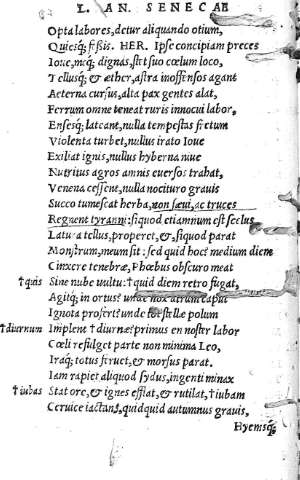 L. AN. SENECAE
Opta labores, detur aliquando otium,
Quiesq; fessis. HER. Ipse concipiam preces
Ioue, meq; dignas, stet suo cœlum loco,
Tellusq; & æther, astra inoffensos agant
Aeterna cursus, alta pax gentes alat,
Ferrum omne teneat ruris innocui labor,
Ensesq; lateant, nulla tempestas fretum
Violenta turbet, nullus irato Ioue
Exiliat ignis, nullus hyberna niue
Nutritus agros amnis euersos trahat,
Venena cessent, nulla nocituro grauis
Succo tumescat herba, non sæui, ac truces
Regnent tyranni: siquod etiamnum est scelus
Latura tellus, properet, & siquod parat
Monstrum, meum sit: sed quid hoc? medium diem
Cinxere tenebræ, Phœbus obscuro meat
†quis Sine nube uultu: †quid diem retro fugat,
Agitq; in ortus? unde nox atrum caput
Ignota profert? unde tot stellæ polum
†diurnum Implent †diurnæ? primus en noster labor
Cœli refulget parte non minima Leo,
Iraq; totus feruet, & morsus parat.
Iam rapiet aliquod sydus, ingenti minax
†iubas Stat ore, & ignes efflat, & rutilat, †iubam
Ceruice iactans, quidquid autumnus grauis,
Hyemsq;